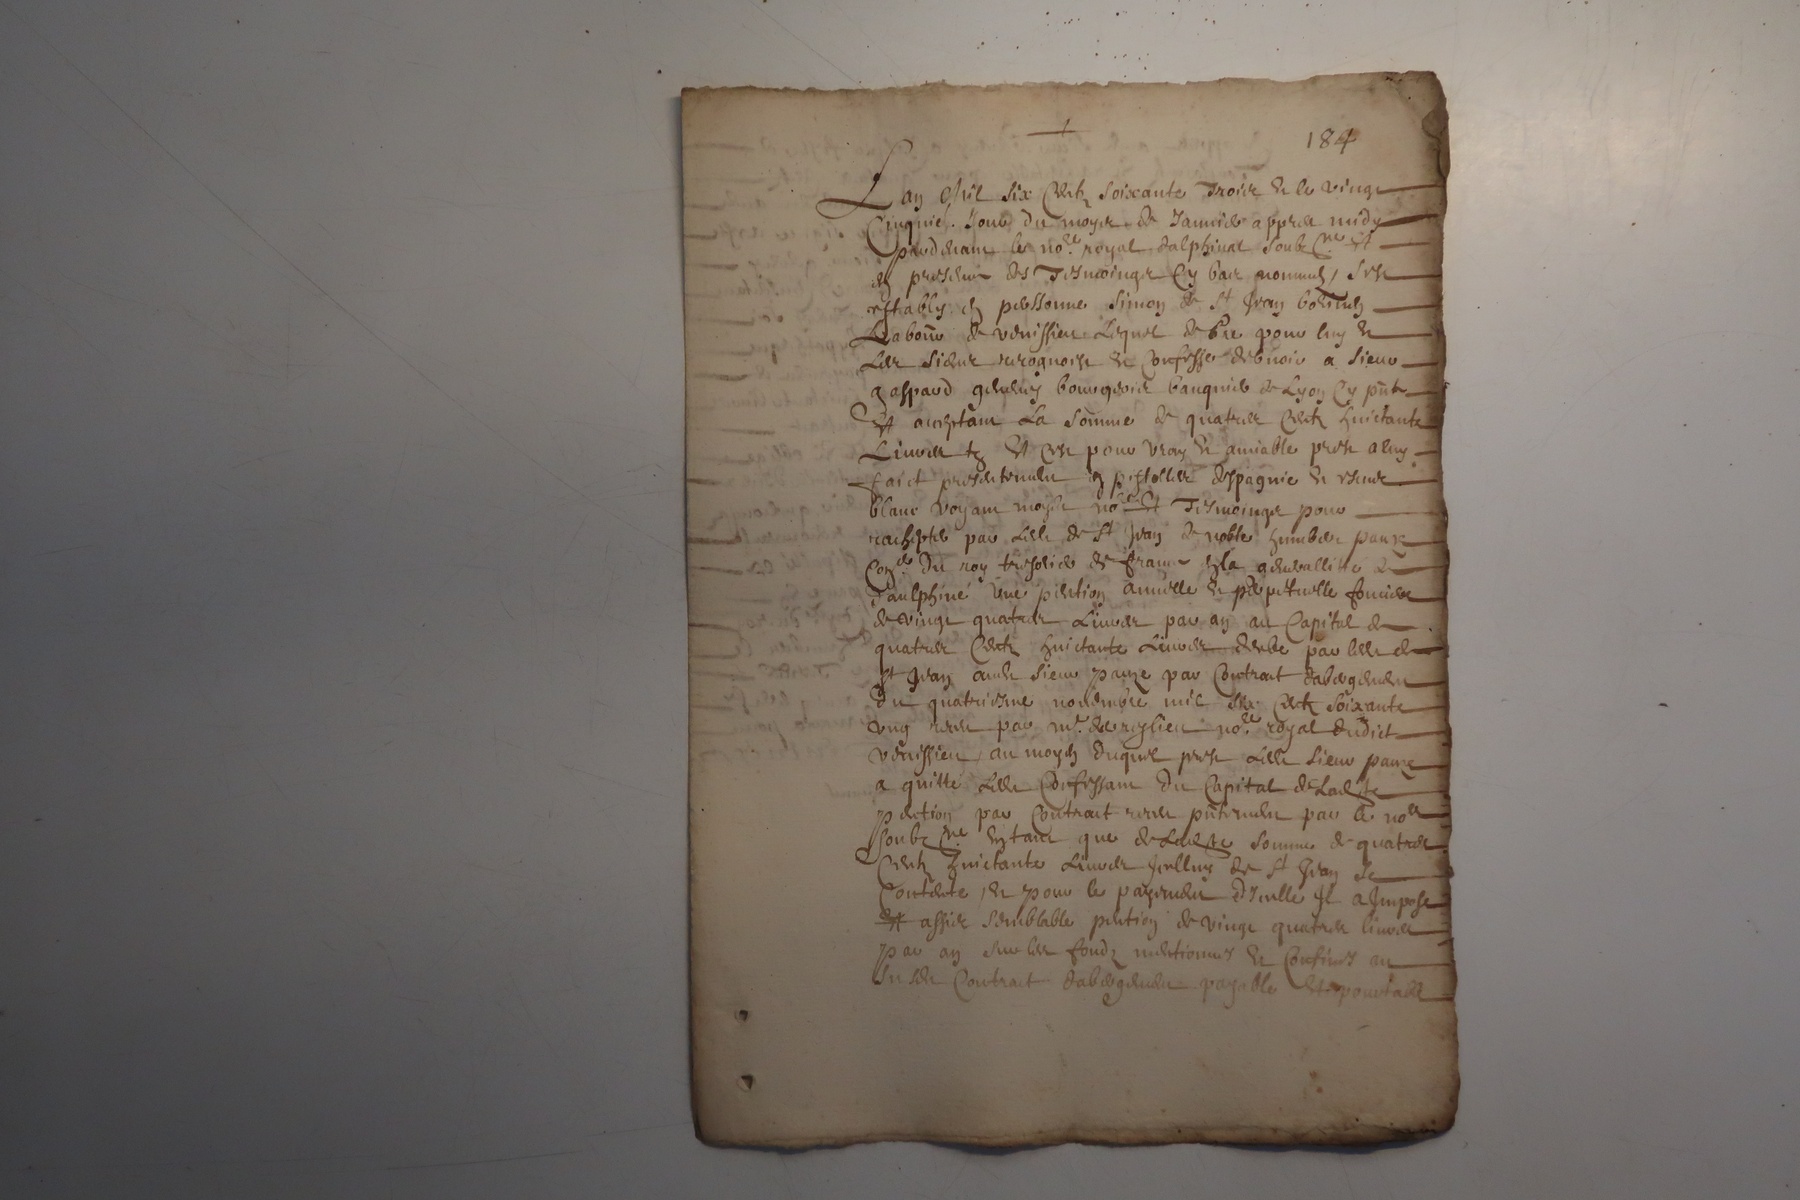 184
Lan Mil Six Centz Soixante Trois et le vingt
Cinquie. Jour du moys de Januier appres midy
pardeuant le no.re royal dalphinal soubz.ne et
en presence des Tesmoingz Cy bas nommes, sest
estably en personne Simon de St Jean
Labour de venissieu Lequel de gre pour luy et
Les siens recognoist et Confesse debuoir a Sieur
gaspard bourgeois banquier de Lyon Cy pnt
Et acceptant La somme de quatres Centz huictante
Liures tz Et Cest pour vray et amiable prest a luy
faict presentement en pistolles despagnie et
blanc voyant moydit no.re et Tesmoingz pour
rachepter par Ledit de St Jean de noble humbert
Con.er du roy tresorier de france en la generallitte de
daulphine une pention annuelle et perpetuelle fonciere
de vingt quatres Liures par an au Capital de
quatres Centz huictante Liures deube par ledit de
St Jean audit Sieur par Contract dabergement
du quatriesme nouembre mil six Centz Soixante
ung receu par m.e no.re royal dudict
venissieu, au moyen duquel prest Ledit Sieur
a quitte Ledit Confessant du Capital de Ladite
pention par Contract receu pntement par le no.re
soubz.ne en tant que de Ladite somme de quatres
Centz huictante Liures Icelluy de St Jean se
Contente, et pour le payement dicelle Il a Impose
et assis semblable pention de vingt quatres liures
par an sur les fondz mentionnes et Confines au
susdit Contract dabergement payable et portable